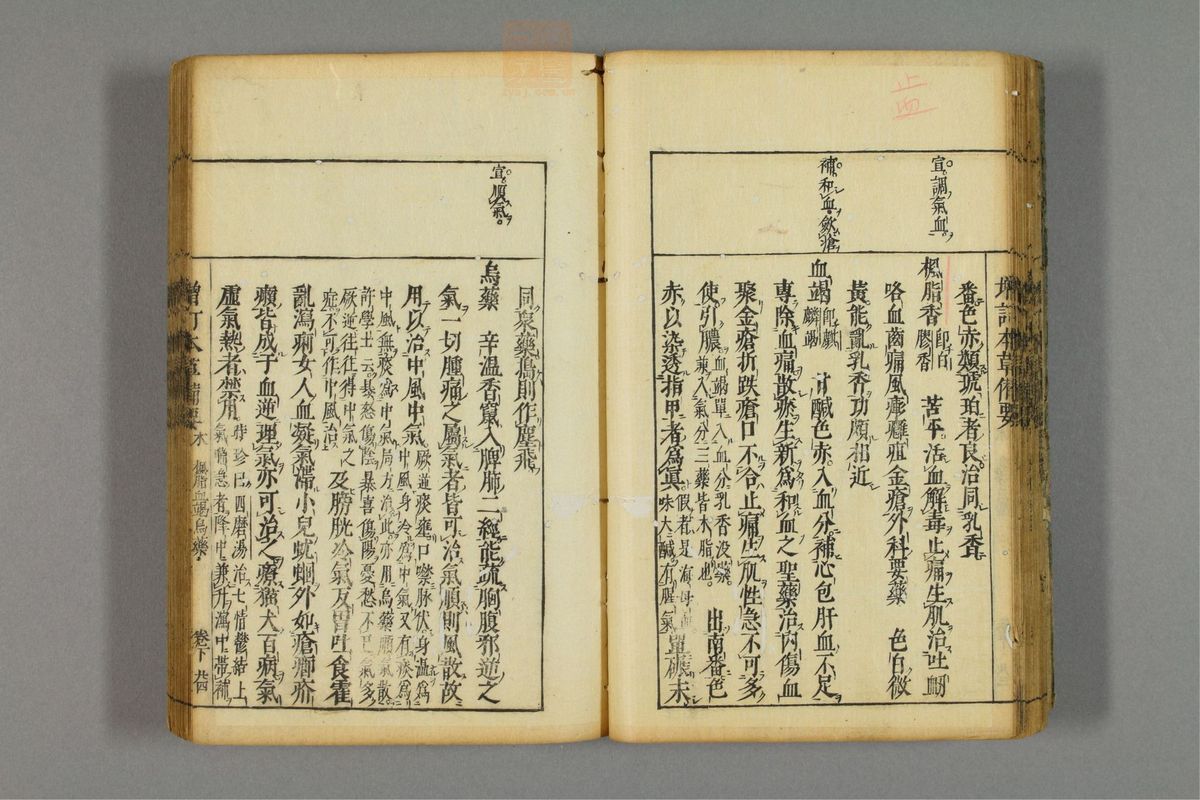 止血
宣調氣血
補和血歛瘡
增訂本草備要
番色赤類琥珀者良治同乳香
楓脂香 即白膠香 苦平活血解毒止痛生肌治吐衂
咯血齒痛風疹癰疽金瘡外科要藥 色白微
黃能亂乳香功頗相近
血竭 即麒麟竭 甘鹹色赤入血分補心包肝血不足
專除血痛散瘀生新為和血之聖藥治内傷血
聚金瘡折跌瘡口不合止痛生肌性急不可多
使引膿 血竭單入血分乳香没藥兼入氣分三藥皆木脂也 出南番色
赤以染透指甲者為眞 假者是海母血味大鹹有腥氣 單碾末
宣順氣
同衆藥搗則作塵飛
烏藥 辛溫香竄入脾肺二經能疏胸腹邪逆之
氣一切腫痛之屬氣者皆可治氣順則風散故
用以治中風中氣 厥逆痰壅口噤脉伏身溫為中風身冷為中氣又有痰為
中風無痰為中氣局方治此亦用烏藥順氣散
許學士云暴怒傷陰暴喜傷陽憂愁不已氣多
厥逆往往得中氣之症不可作中風治 及膀胱冷氣反胃吐食霍
亂瀉痢女人血凝氣滯小兒蚘蛔外如瘡癤疥
癩皆成于血逆理氣亦可治之療猫犬百病氣
虛氣熱者禁用 時珍曰四磨湯治七情鬱結上氣喘急者降中兼升瀉中帶補
增訂本草備要 木 楓脂血竭烏藥 卷下 廿四